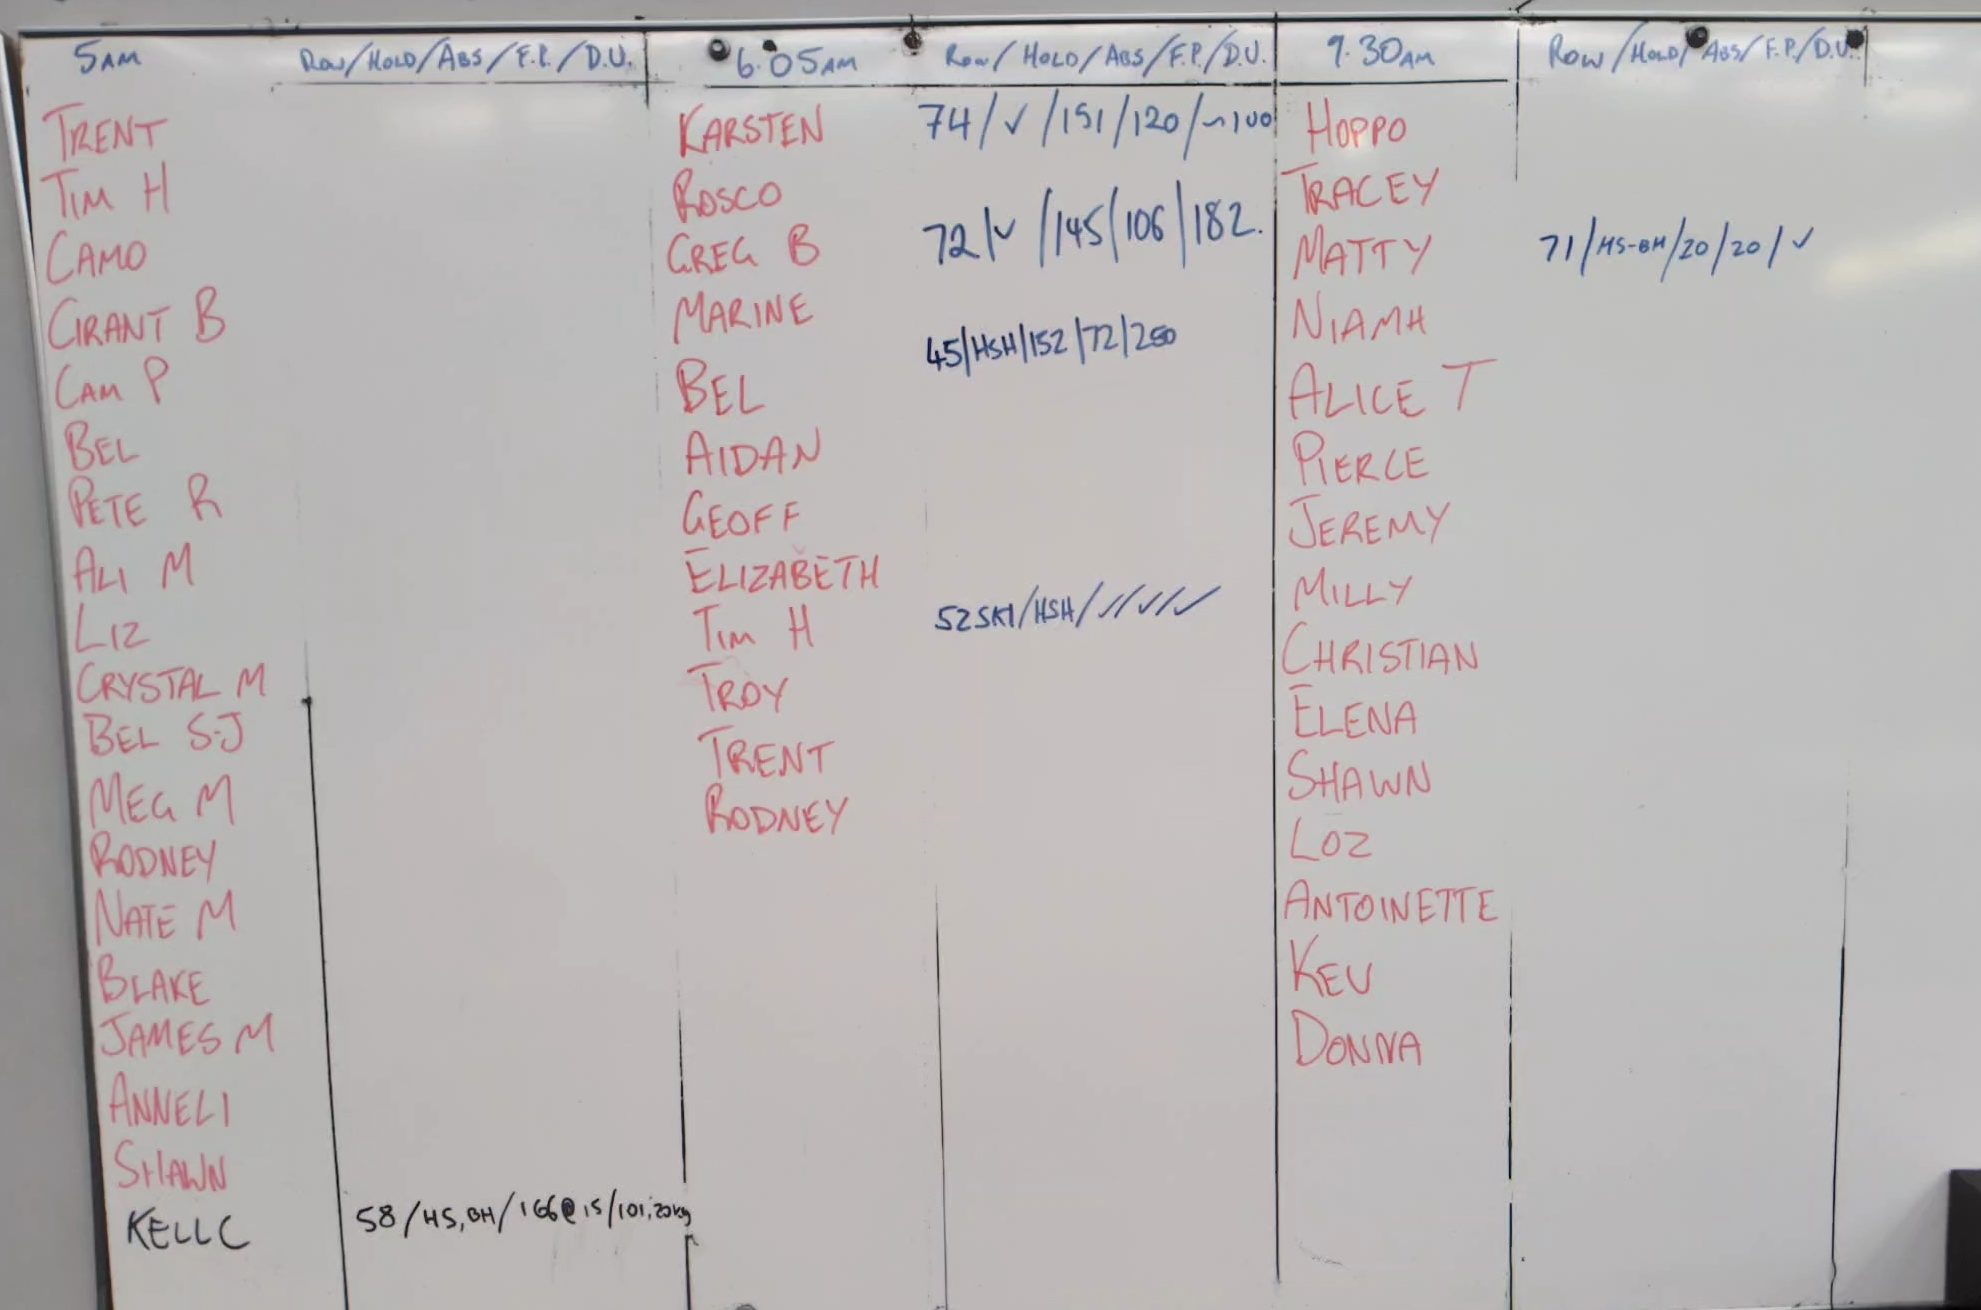 5AM Row/HOLD/ABS/F.P./D.U.
TRENT
TIM H
CAMO
GRANT B
CAM P
BEL
PETE R
ALI M
LIZ
CRYSTAL M
BEL S-J
MEG M
RODNEY
NATE M
BLAKE
JAMES M
ANNELI
SHAWN
KELL C 58/HS,BH/166@15/101,20kg
6.05AM Row/HOLD/ABS/F.P./D.U.
KARSTEN 74/✓/151/120/~100
ROSCO
GREG B 72/✓/145/106/182.
MARINE
45/HSH/152/72/250
BEL
AIDAN
GEOFF
ELIZABETH
TIM H 52SKI/HSH/✓/✓/✓
TROY
TRENT
RODNEY
9.30AM ROW/HOLD/ABS/F.P./D.U.
HOPPO
TRACEY
MATTY 71/HS-BH/20/20/✓
NIAMH
ALICE T
PIERCE
JEREMY
MILLY
CHRISTIAN
ELENA
SHAWN
LOZ
ANTOINETTE
KEV
DONNA